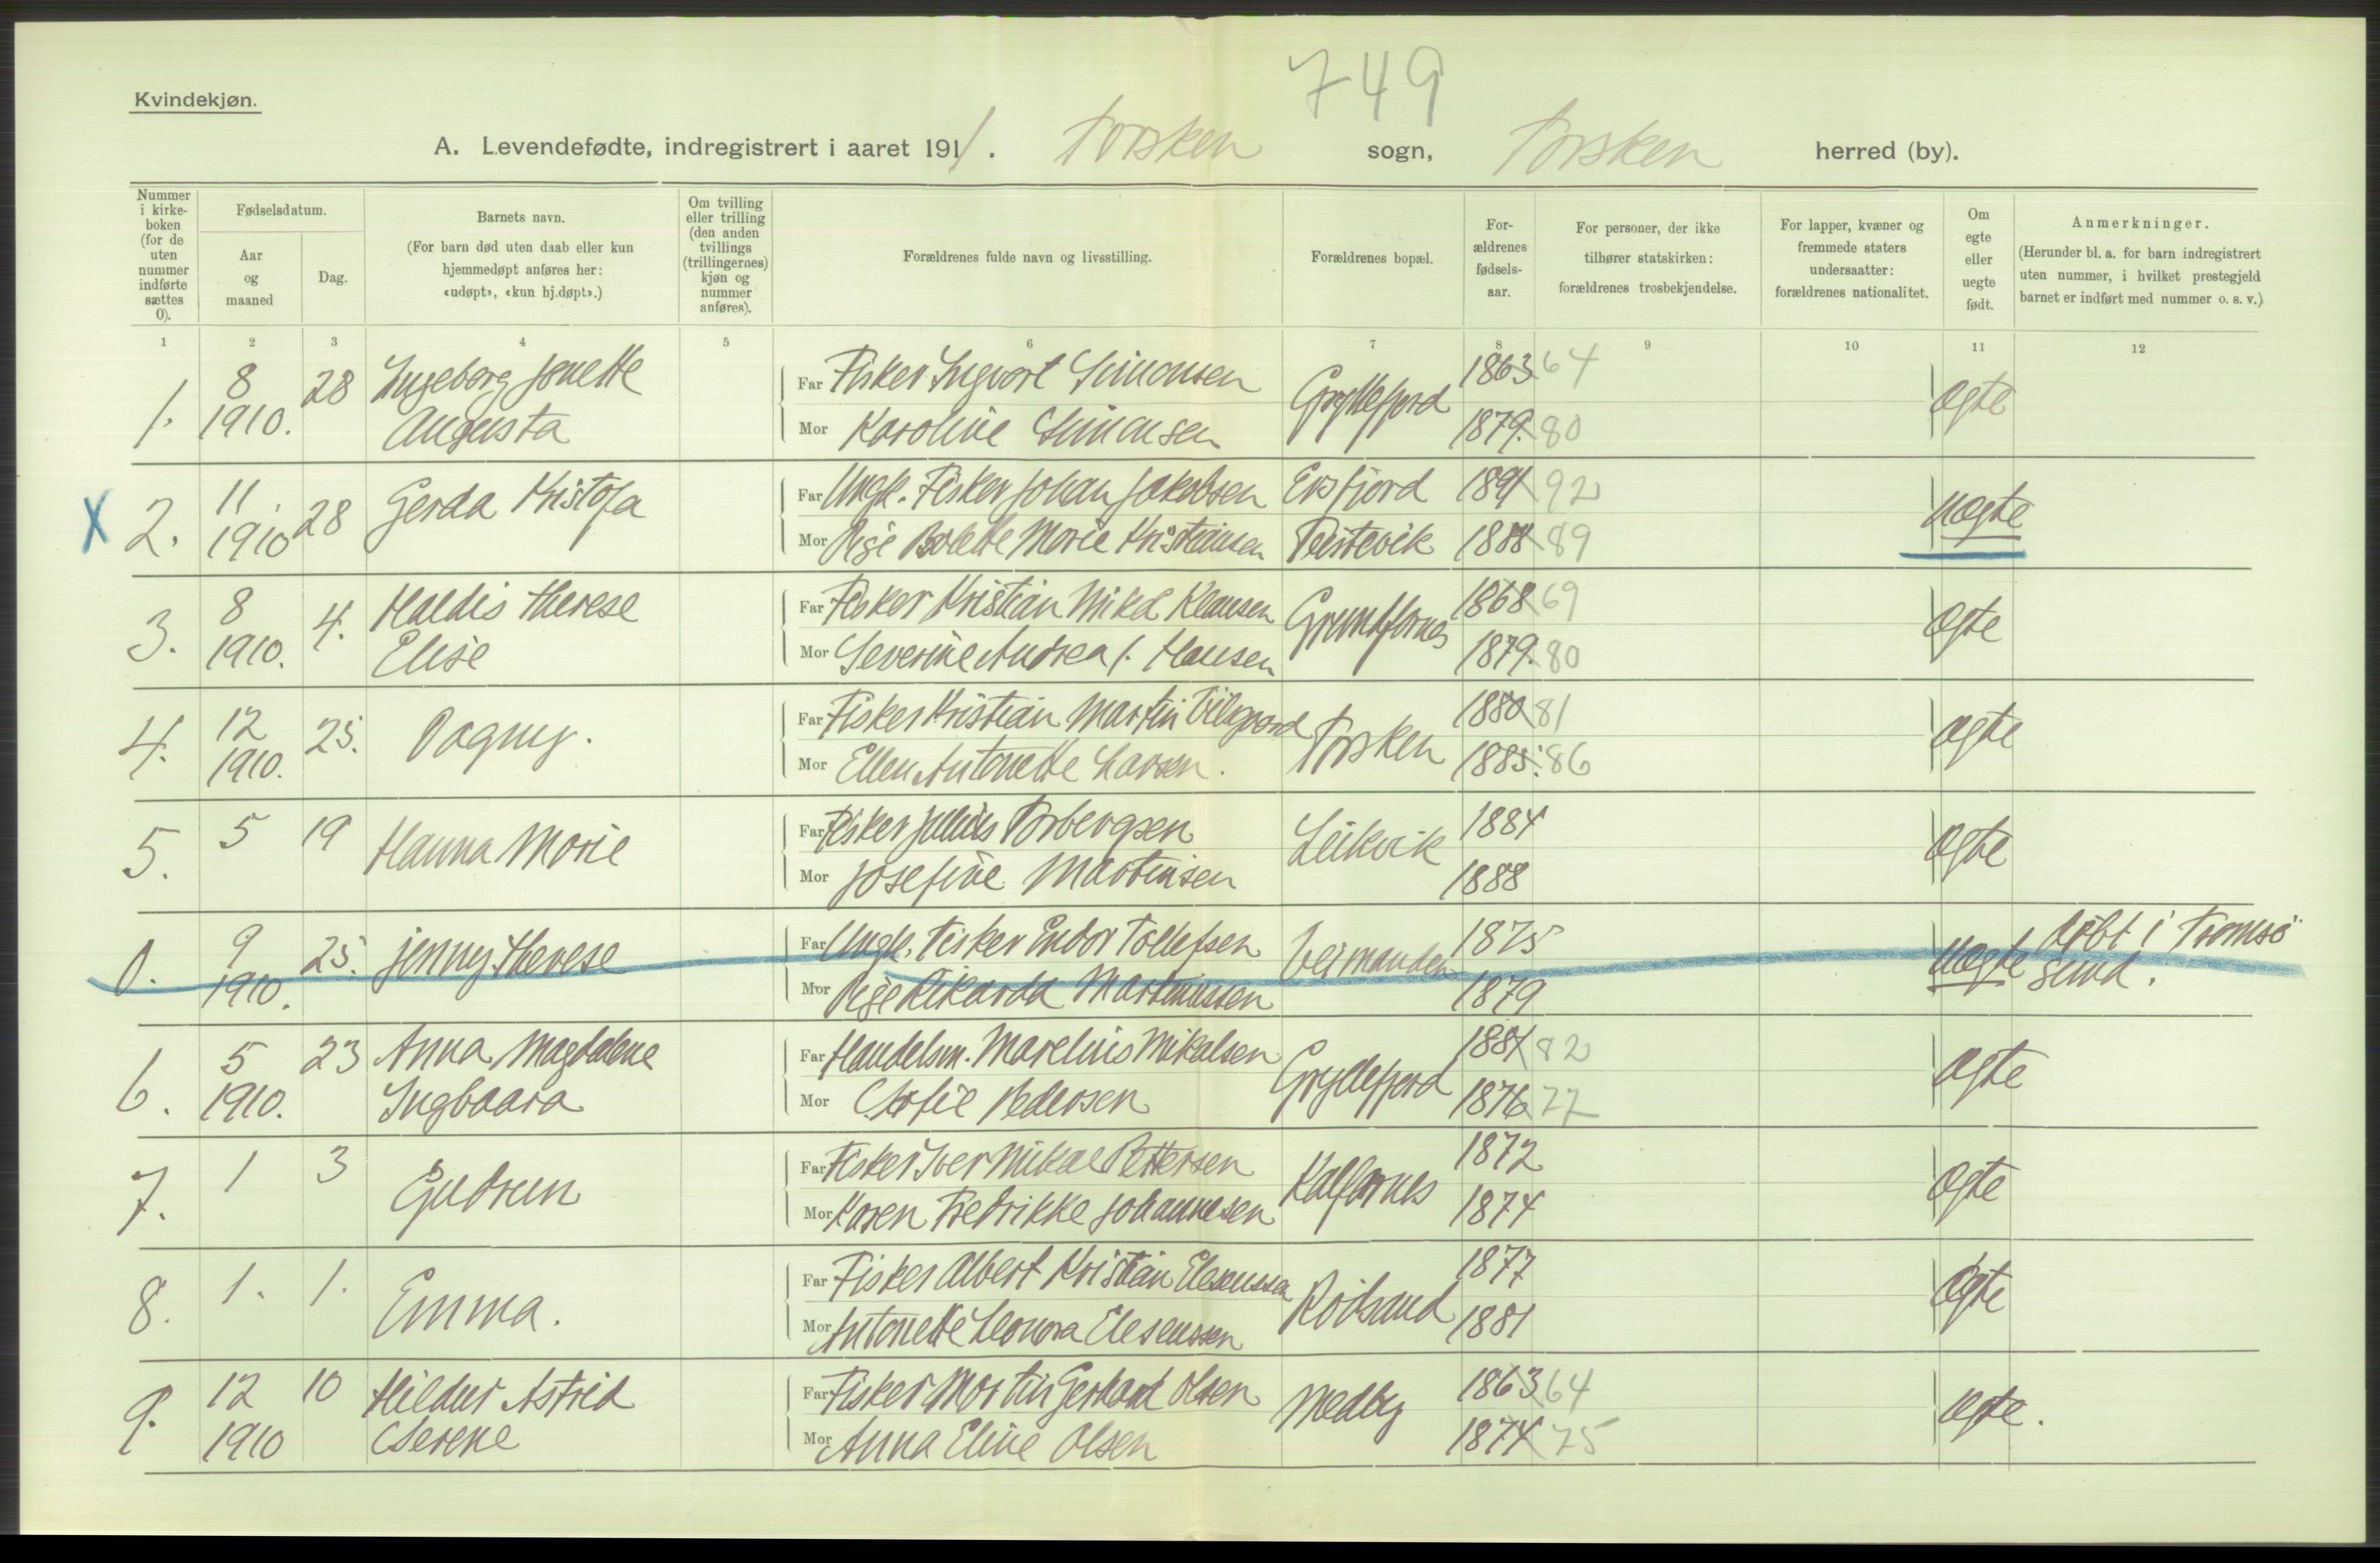 749
Kvindekjøn.
A. Levendefødte, indregistrert i aaret 1911. Torsken sogn, Torsken herred (by).
Nummer i kirkeboken (for de uten nummer indførte sættes 0).
Fødselsdatum.
Aar og maaned
Dag.
Barnets navn.
(For barn død uten daab eller kun hjemmedøpt anføres her: «udøpt», «kun hj.døpt».)
Om tvilling eller trilling (den anden tvillings (trillingernes) kjøn og nummer anføres).
Forældrenes fulde navn og livsstilling.
Forældrenes bopæl.
Forældrenes fødselsaar.
For personer, der ikke tilhører statskirken: forældrenes trosbekjendelse.
For lapper, kvæner og fremmede staters undersaatter: forældrenes nationalitet.
Om egte eller uegte født.
Anmerkninger.
(Herunder bl. a. for barn indregistrert uten nummer, i hvilket prestegjeld barnet er indført med nummer o. s. v.)
1 2 3 4 5 6 7 8 9 10 11 12
1. 8 1910. 28 Ingeborg Jonette Augusta
Far Fisker Ingvart Simonsen Gryllefjord 1863 64 ægte
Mor Karoline Simonsen 1879. 80
X 2. 11. 1910 28 Gerda Kristofa
Far Ungk. Fisker Johan Jakobsen Ersfjord 1891 92 uægte
Mor Pige Bolette Marie Kristiansen Teistevik 1888 89
3. 8 1910. 4. Haldis Therese Elise
Far Fisker Kristian Mikal Klausen 1868 69 ægte
Mor Severine Andrea f. Hansen 1879. 80
4. 12 1910. 25. Dagny.
Far Fisker Kristian Martin Torsken 1880 81 ægte
Mor Ellen Antonette Larsen. 1885. 86
5. 5 19 Hanna Marie
Far Fisker Julius Torbergsen Leikvik 1884 ægte
Mor Josefine Martinsen 1888
0. 9 1910. 25. Jenny Therese
Far Ungk. Fisker Endor Tollefsen Veimanden 1875 uægte døbt i Tromsø
Mor Pige Rikarda Martinussen 1879 sund.
6. 5 1910. 23 Anna Magdalene Ingbaara
Far Handelsm. Marelius Mikalsen Gryllefjord 1881 82 ægte
Mor Sofie Pedersen 1876 77
7. 1 3 Gudrun
Far Fisker Iver Mikal Pettersen Kalfarnes 1872 ægte
Mor Karen Fredrikke Johannesen 1874
8. 1. 1. Emma.
Far Fisker Albert Kristian Elesenssen Rødsand 1877 ægte
Mor Antonette Leonora Elesenssen 1881
9. 12 1910 10 Hildur Astrid Serene
Far Fisker Martin Gerhard Olsen Medby 1863 64 ægte.
Mor Anna Eline Olsen 1874 75